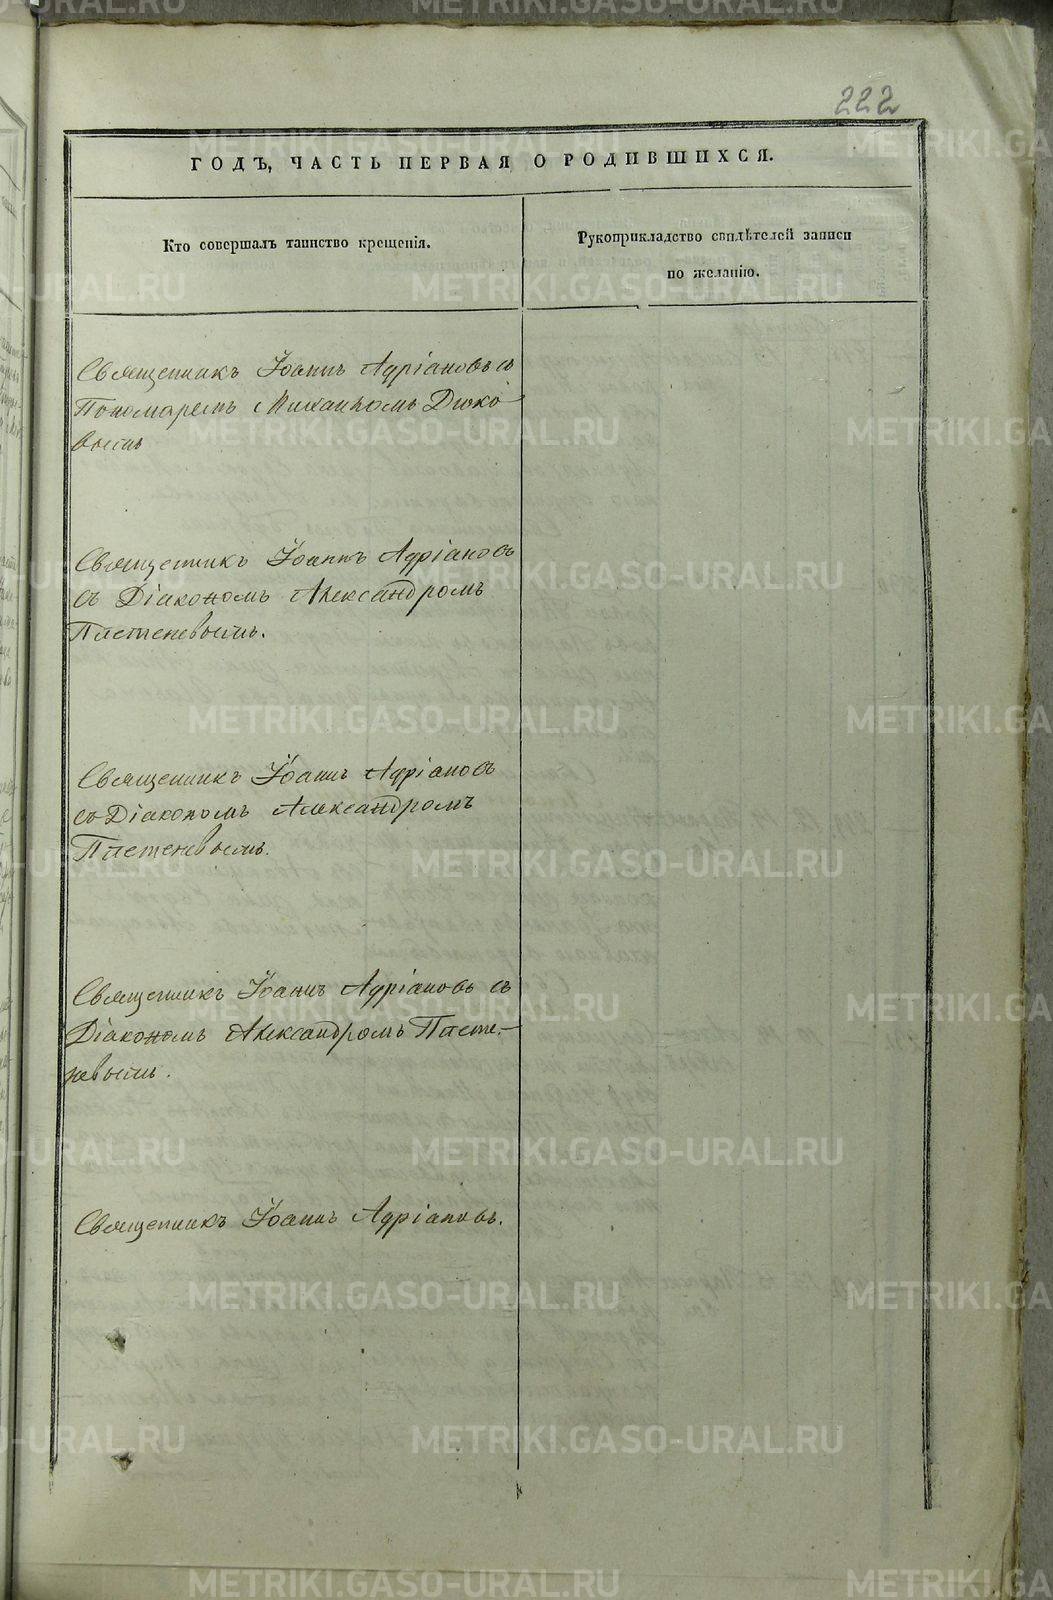 222
ГОДЪ, ЧАСТЬ ПЕРВАЯ О РОДИВШИХСЯ.
Кто совершалъ таинство крещенія.
Рукоприкладство свидѣтелей записи
по желанію.
Священникъ Іоаннъ Адріановъ съ
Пономаремъ Михаиломъ Дюко-
вымъ
Священникъ Іоаннъ Адріановъ
съ Діакономъ Александромъ
Плетеневымъ.
Священникъ Іоаннъ Адріановъ
съ Діакономъ Александромъ
Плетеневымъ.
Священникъ Іоаннъ Адріановъ съ
Діакономъ Александромъ Плете-
невымъ.
Священникъ Іоаннъ Адріановъ.
METRIKI.GASO-URAL.RU